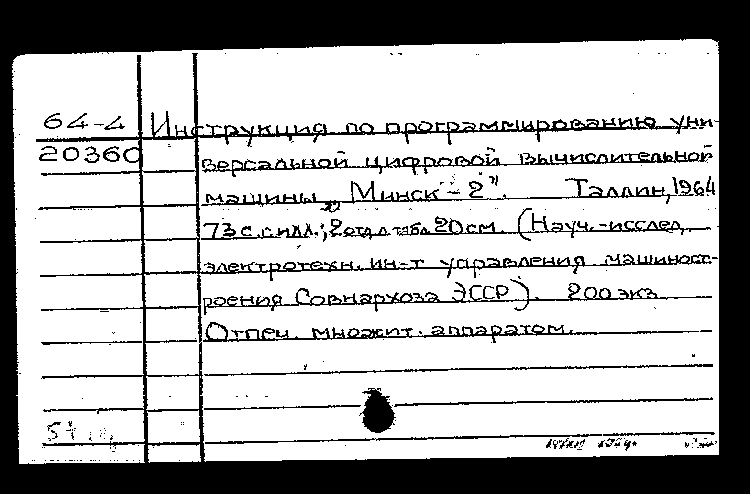 64-4 Инструкция по программированию уни-
20360 версальной цифровой вычислительной
машины „Минск-2". Таллин, 1964
73 с. с илл.; 2 отд.л табл. 20 см. (Науч.-исслед.
электротехн. ин-т управления машиност-
роения Совнархоза ЭССР). 200 экз.
Отпеч. множит. аппаратом.